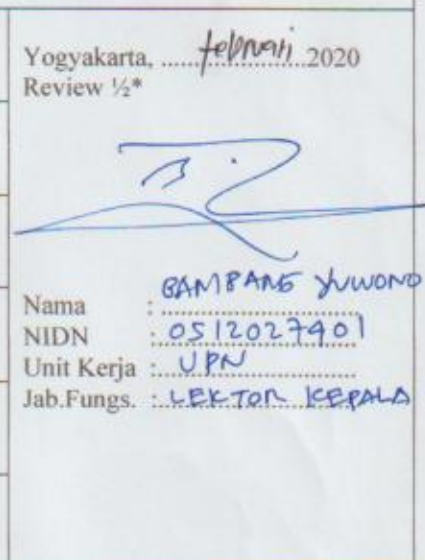 Yogyakarta, ....februari.... 2020
Review ½*
Nama : BAMBANG YUWONO
NIDN : 0512027401
Unit Kerja : UPN
Jab.Fungs. : LEKTOR KEPALA